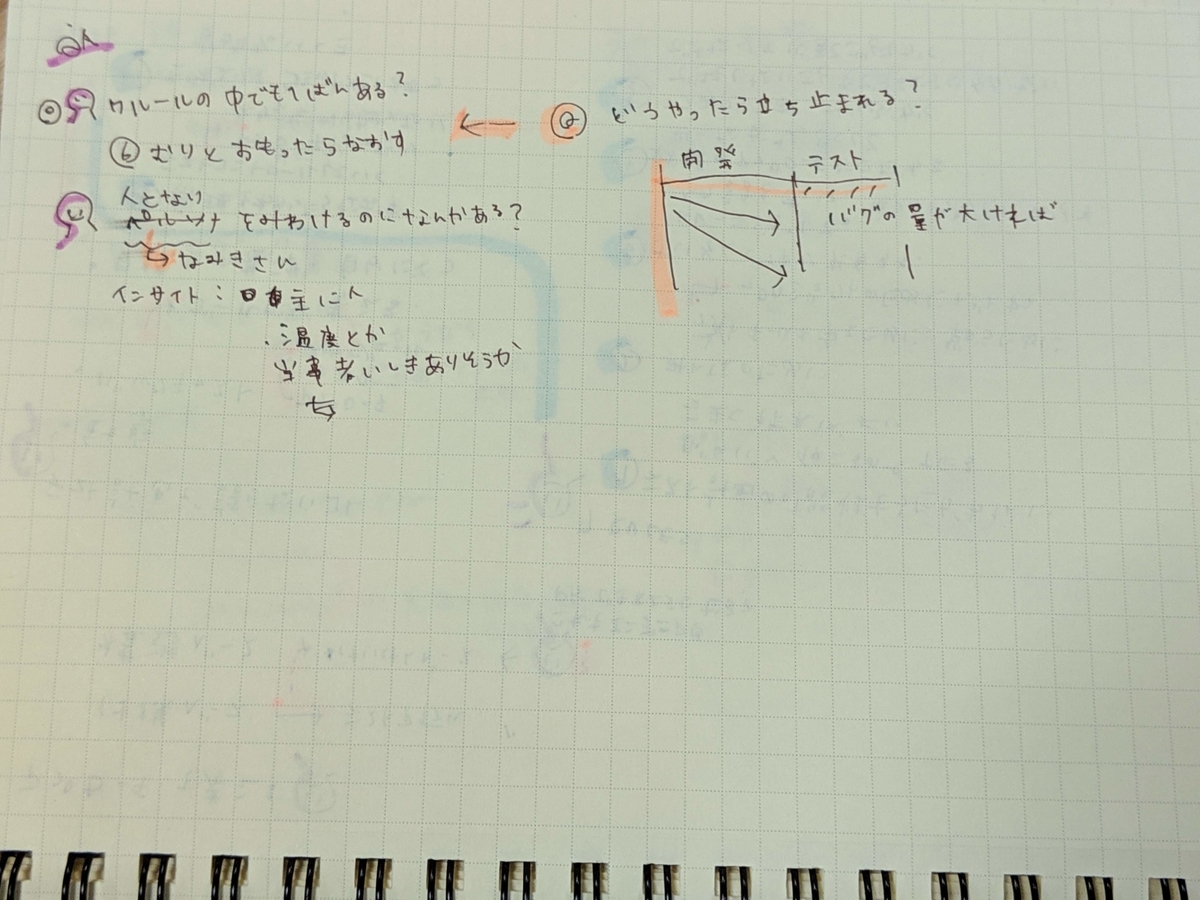 QA
ワルールの中でもいちばんある?
⑥ むりとおもったらなおす
人となり
をみわけるのになんかある?
↳ なみきさん
インサイト: 自主に人
・温度とか
当事者いしきありそうか
← ② どうやったら立ち止まれる?
開発 テスト
バグの量が大ければ